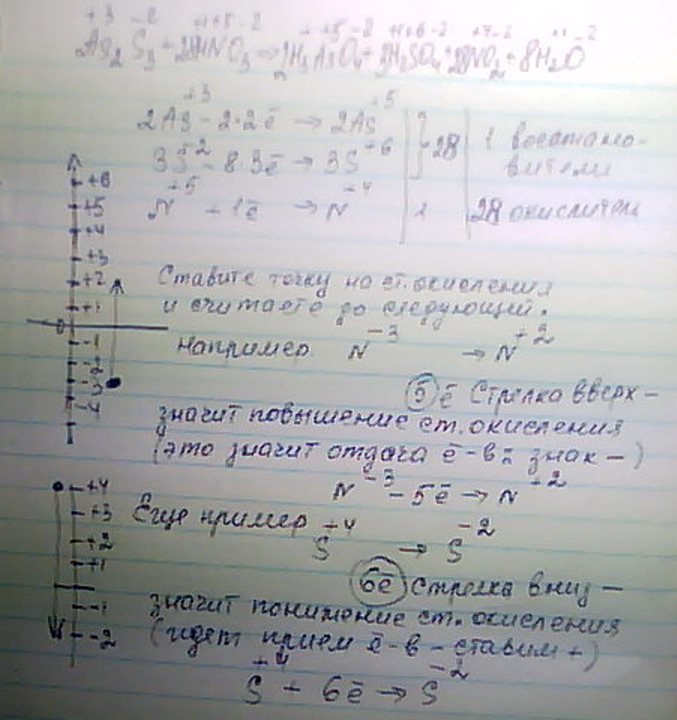 +3 -2 +1 +5 -2 + +5 -2 +1 +6 -2 +4 -2 +1 -2
As2S3 + 28HNO3 → 2H3AsO4 + 3H2SO4 + 28NO2 + 8H2O
2As+3 - 2·2ē → 2As+5 } 28 | 1 восстано-
3S-2 - 8·3ē → 3S+6 вители
N+5 + 1ē → N+4 | 1 | 28 окислитель
+6
+5
+4
+3
+2
+1
0
-1
-2
-3
-4
Ставите точку на ст. окисления
и считаете до следующий.
Например N-3 → N+2
5ē Стрелка вверх -
значит повышение ст. окисления
(это значит отдача ē-в знак -)
N-3 - 5ē → N+2
+4
+3
+2
+1
-1
-2
Еще пример S+4 → S-2
6ē Стрелка вниз -
значит понижение ст. окисления
(идет прием ē-в - ставим +)
S+4 + 6ē → S-2